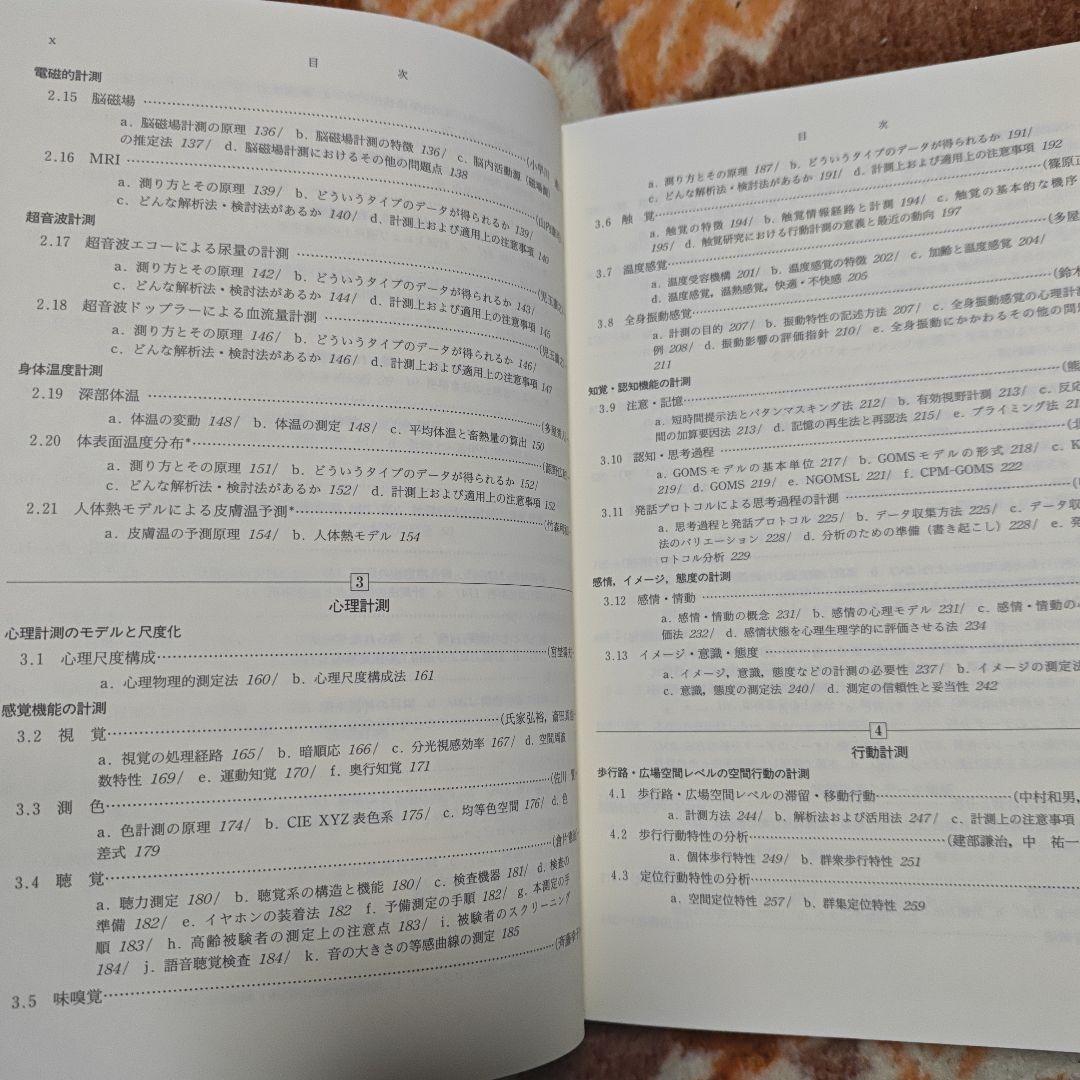 x
目 次
電磁的計測
2.15 脳磁場
a. 脳磁場計測の原理 136/ b. 脳磁場計測の特徴 136/ c. 脳内活動源(磁場源)
の推定法 137/ d. 脳磁場計測におけるその他の問題点 138
2.16 MRI
a. 測り方とその原理 139/ b. どういうタイプのデータが得られるか 139/
c. どんな解析法・検討法があるか 140/ d. 計測上および適用上の注意事項 140
超音波計測
2.17 超音波エコーによる尿量の計測
a. 測り方とその原理 142/ b. どういうタイプのデータが得られるか 143/
c. どんな解析法・検討法があるか 144/ d. 計測上および適用上の注意事項 145
2.18 超音波ドップラーによる血流量計測
a. 測り方とその原理 146/ b. どういうタイプのデータが得られるか 146/
c. どんな解析法・検討法があるか 146/ d. 計測上および適用上の注意事項 147
身体温度計測
2.19 深部体温
a. 体温の変動 148/ b. 体温の測定 148/ c. 平均体温と蓄熱量の算出 150
2.20 体表面温度分布*
a. 測り方とその原理 151/ b. どういうタイプのデータが得られるか 152/
c. どんな解析法・検討法があるか 152/ d. 計測上および適用上の注意事項 152
2.21 人体熱モデルによる皮膚温予測*
a. 皮膚温の予測原理 154/ b. 人体熱モデル 154
3
心理計測
心理計測のモデルと尺度化
3.1 心理尺度構成
a. 心理物理的測定法 160/ b. 心理尺度構成法 161
感覚機能の計測
3.2 視 覚 (氏家弘裕,
a. 視覚の処理経路 165/ b. 暗順応 166/ c. 分光視感効率 167/ d. 空間周波
数特性 169/ e. 運動知覚 170/ f. 奥行知覚 171
3.3 測 色 (佐川
a. 色計測の原理 174/ b. CIE XYZ表色系 175/ c. 均等色空間 176/ d. 色
差式 179
3.4 聴 覚
a. 聴力測定 180/ b. 聴覚系の構造と機能 180/ c. 検査機器 181/ d. 検査の
準備 182/ e. イヤホンの装着法 182 f. 予備測定の手順 182/ g. 本測定の手
順 183/ h. 高齢被験者の測定上の注意点 183/ i. 被験者のスクリーニング
184/ j. 語音聴覚検査 184/ k. 音の大きさの等感曲線の測定 185
3.5 味嗅覚
目 次
a. 測り方とその原理 187/ b. どういうタイプのデータが得られるか 191/
c. どんな解析法・検討法があるか 191/ d. 計測上および適用上の注意事項 192
3.6 触 覚 (篠原
a. 触覚の特徴 194/ b. 触覚情報経路と計測 194/ c. 触覚の基本的な機序
195/ d. 触覚研究における行動計測の意義と最近の動向 197
3.7 温度感覚 (多屋
a. 温度受容機構 201/ b. 温度感覚の特徴 202/ c. 加齢と温度感覚 204/
d. 温度感覚,温熱感覚,快適・不快感 205
3.8 全身振動感覚 (鈴木
a. 計測の目的 207/ b. 振動特性の記述方法 207/ c. 全身振動感覚の心理計測
例 208/ d. 振動影響の評価指針 210/ e. 全身振動にかかわるその他の問題
211
知覚・認知機能の計測
3.9 注意・記憶 (熊
a. 短時間提示法とパタンマスキング法 212/ b. 有効視野計測 213/ c. 反応
間の加算要因法 213/ d. 記憶の再生法と再認法 215/ e. プライミング法
3.10 認知・思考過程
a. GOMSモデルの基本単位 217/ b. GOMSモデルの形式 218/ c. K
219/ d. GOMS 219/ e. NGOMSL 221/ f. CPM-GOMS 222
3.11 発話プロトコルによる思考過程の計測
a. 思考過程と発話プロトコル 225/ b. データ収集方法 225/ c. データ収
法のバリエーション 228/ d. 分析のための準備(書き起こし) 228/ e. 発
ロトコル分析 229
感情,イメージ,態度の計測
3.12 感情・情動
a. 感情・情動の概念 231/ b. 感情の心理モデル 231/ c. 感情・情動の
価法 232/ d. 感情状態を心理生理学的に評価させる法 234
3.13 イメージ・意識・態度
a. イメージ,意識,態度などの計測の必要性 237/ b. イメージの測定法
c. 意識,態度の測定法 240/ d. 測定の信頼性と妥当性 242
4
行動計測
歩行路・広場空間レベルの空間行動の計測
4.1 歩行路・広場空間レベルの滞留・移動行動 (中村和男,
a. 計測方法 244/ b. 解析法および活用法 247/ c. 計測上の注意事項
4.2 歩行行動特性の分析 (建部謙治,中 祐一
a. 個体歩行特性 249/ b. 群衆歩行特性 251
4.3 定位行動特性の分析
a. 空間定位特性 257/ b. 群集定位特性 259